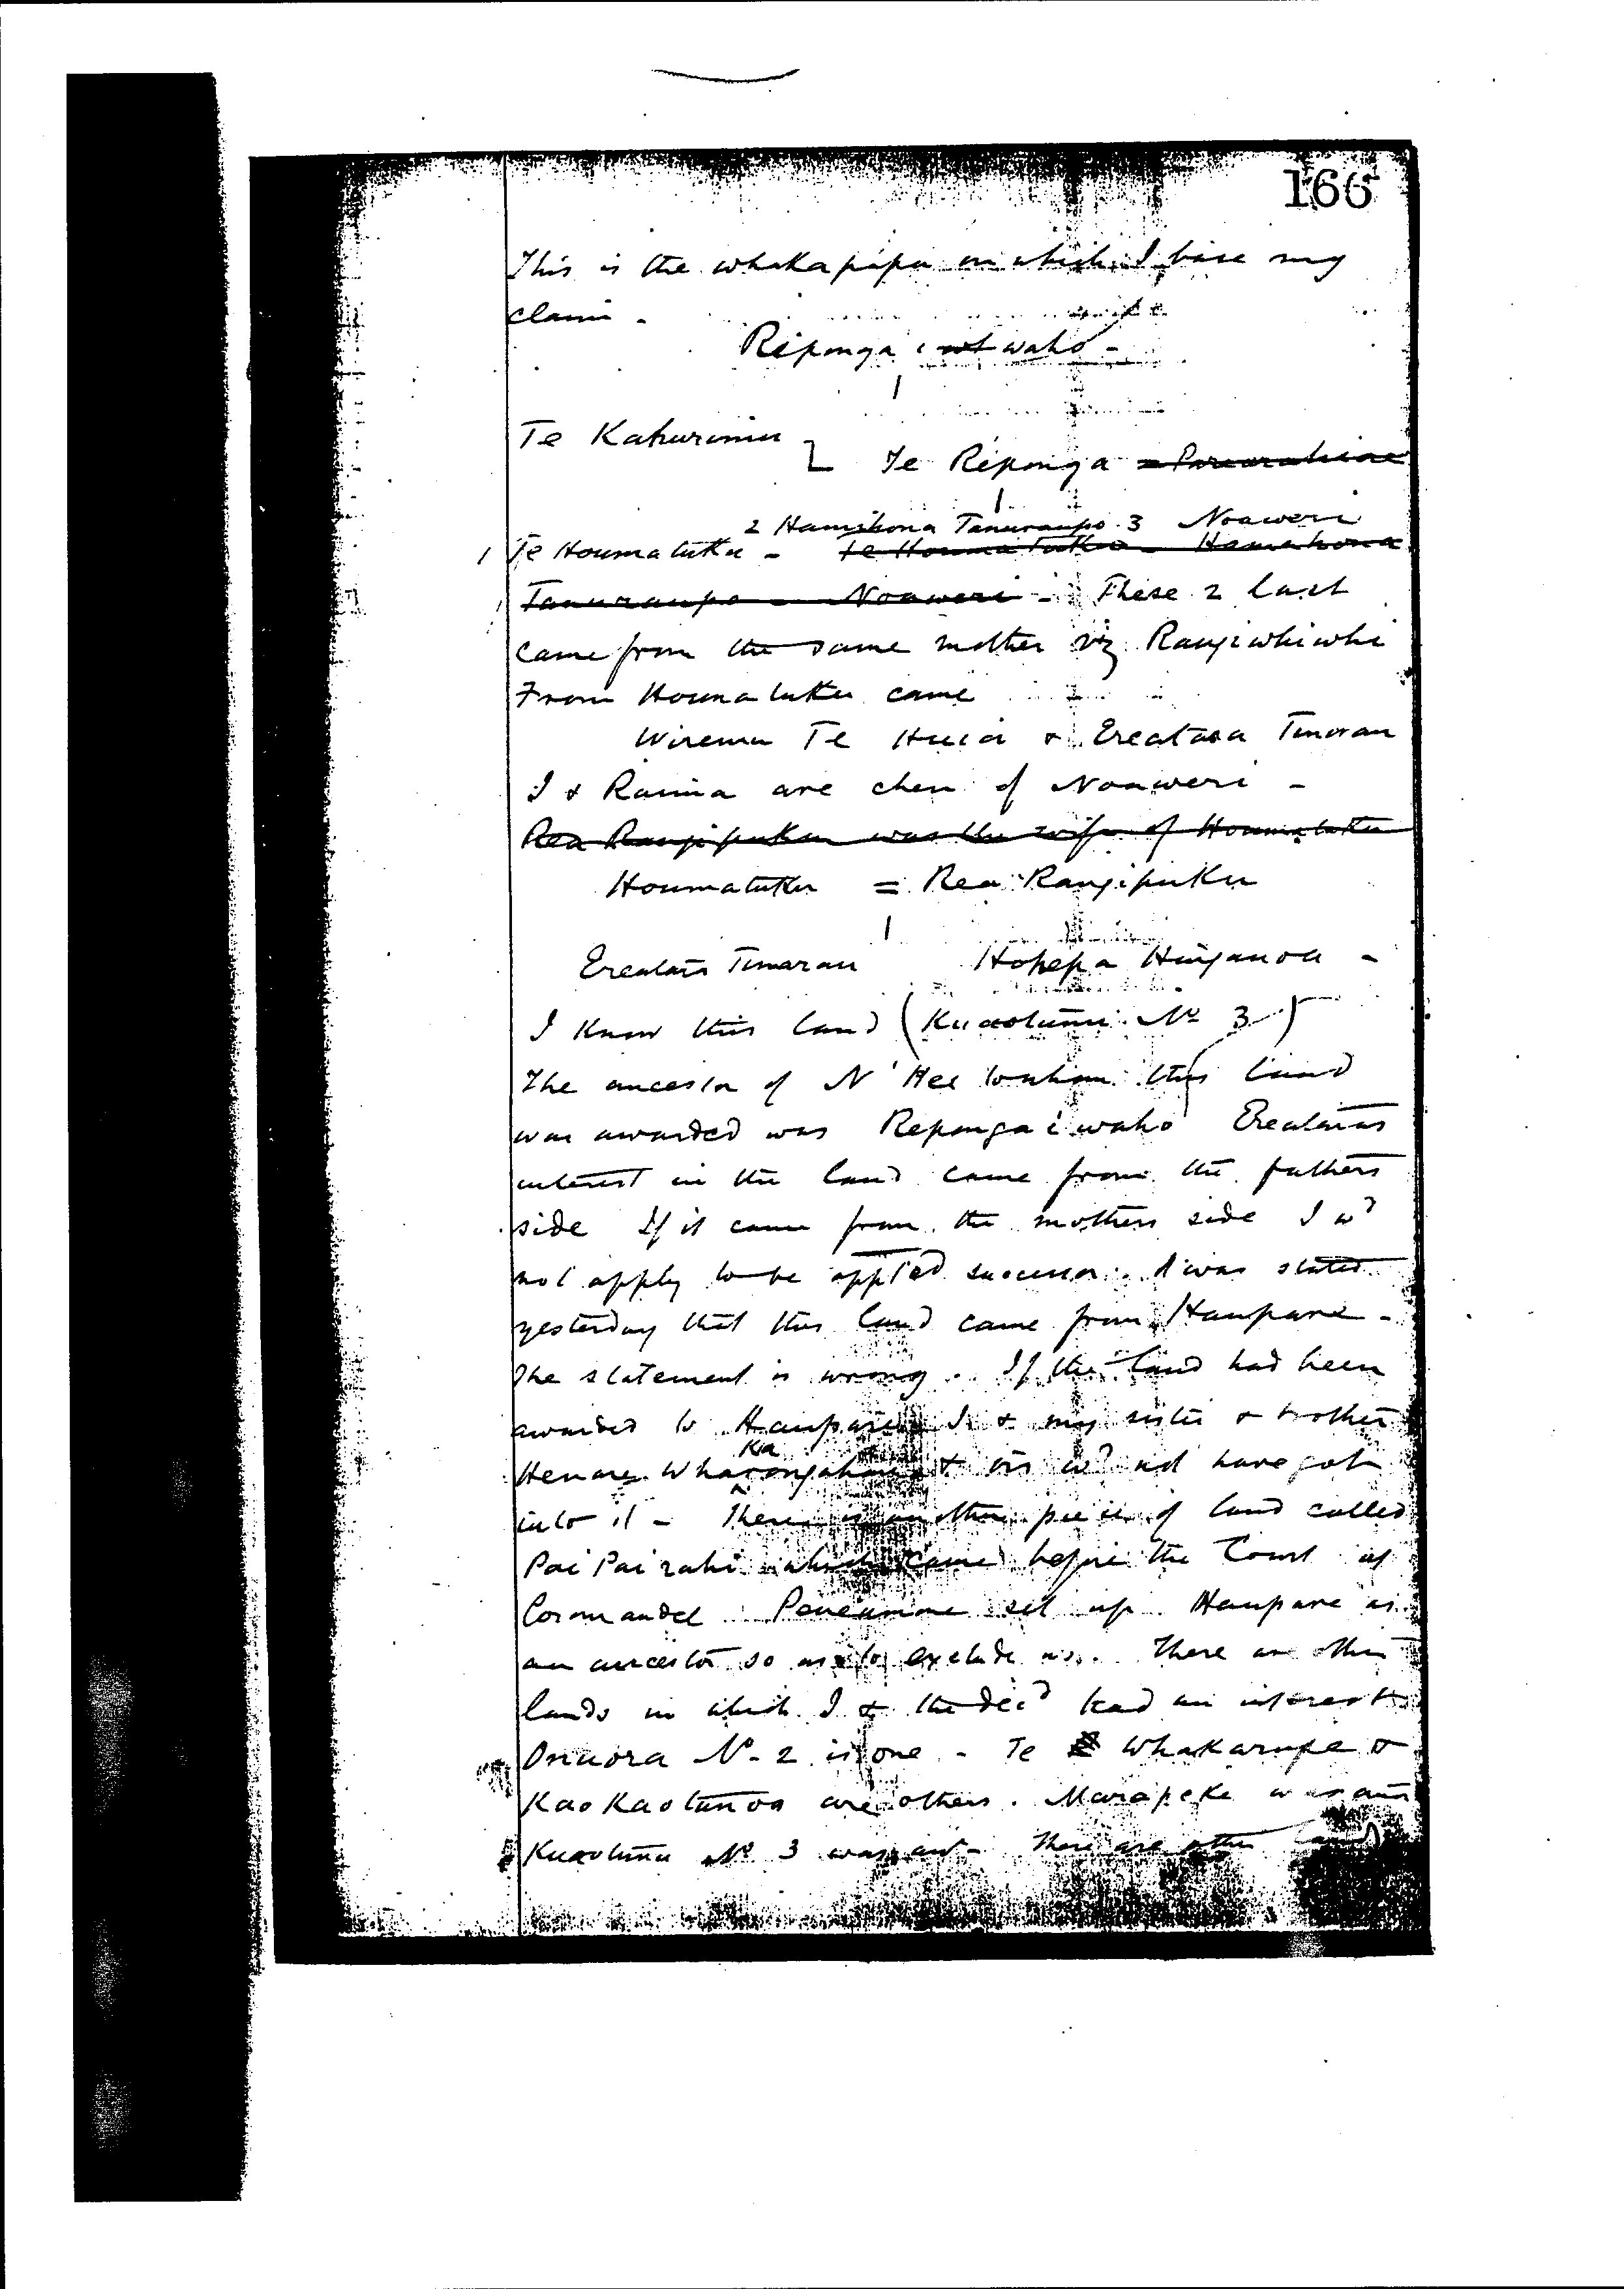 166
This is the whakapapa on which I base my
claim -
Reponga i waho -
Te Kahurimu
Te Reponga = Parearahine
2 Hamihona Tanuraupo 3 Noaweri
1 Te Houmatuku - Te Houmatuku - Hamahona
Tanuraupo - Noaweri - These 2 last
came from the same mother viz Rangiwhiwhi
From Houmatuku came
Wiremu Te Huia & Ereatara Timorau
I & Raima are chen of Noaweri -
Rea Rangipuku was the wife of Houmatuku
Houmatuku = Rea Rangipuku
Ereatara Timarau Hohepa Hinganoa -
I know this land (Kuaotunu No 3)
The ancestor of N' Hei to whom this land
was awarded was Reponga i waho Ereataras
interest in the land came from the fathers
side If it came from the mothers side I wd
not apply to be appted successor. It was stated
yesterday that this land came from Haupare -
The statement is wrong. If the land had been
awarded to Haupare I & my sister & brother
Henare & ors wd not have got
into it - There is another piece of land called
Pai Pai rahi which came before the Court at
Coromandel set up Haupare as
an ancestor so as to exclude us. There are other
lands in which I & the decd had an interest
Onuora No. 2 is one - Te Whakarupe &
Kaokaotunoa are others. Marapeke was
Kuaotunu No 3 was - There are other lands